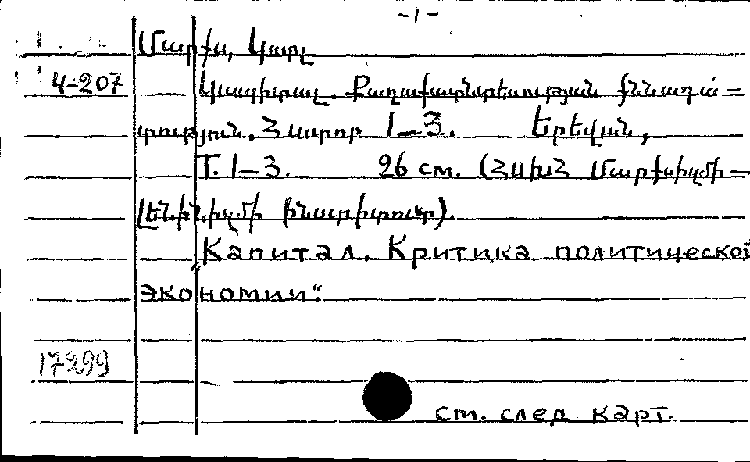 -1-
Մարքս, Կարլ
4-207 Կապիտալ. Քաղաքատնտեսության քննադա-
տություն. Հատոր 1-3. Երևան,
T. 1-3. 26 см. (ՀՍԽՀ Մարքսիզմի-
Լենինիզմի ինստիտուտ).
Капитал. Критика политической
экономии".
17299
см. след карт.